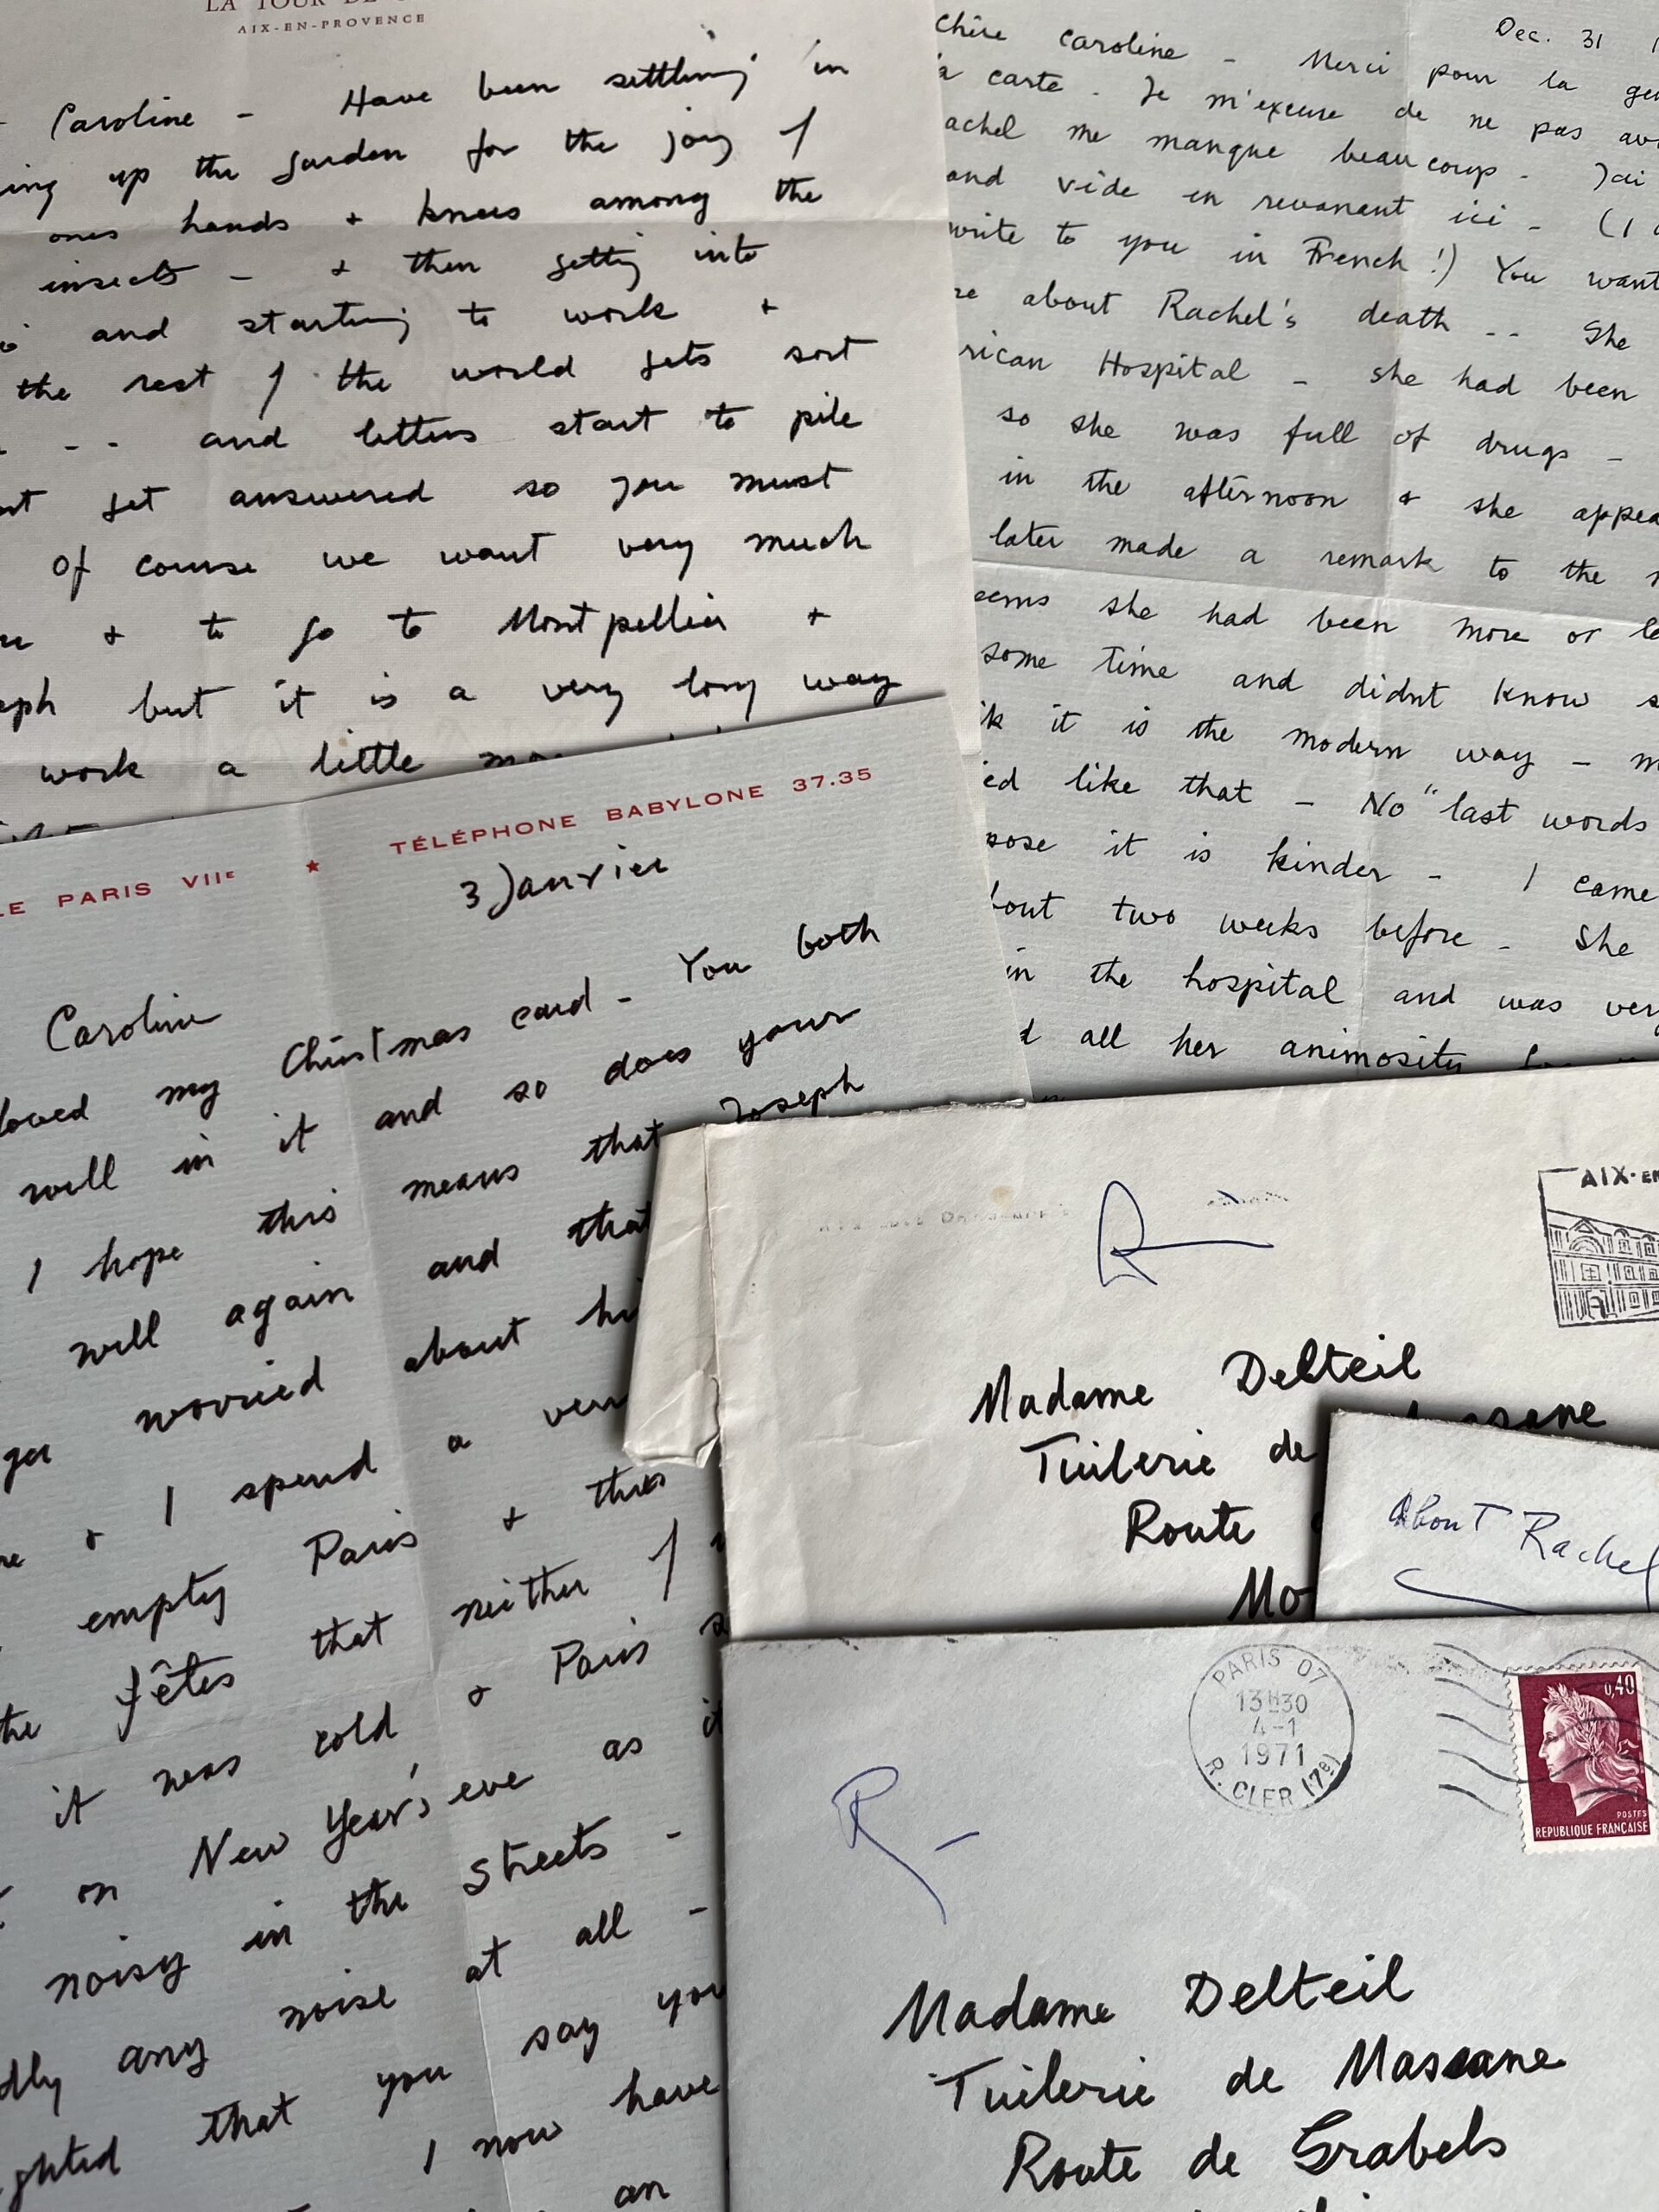 LA TOUR DE
AIX-EN-PROVENCE
Caroline - Have been settling in
ing up the garden for the joy of
ones hands + knees among the
insects - + then getting into
and starting to work +
the rest of the world gets sort
-- and letters start to pile
get answered so you must
Of course we want very much
+ to go to Montpellier +
but it is a very long way
work a little
Dec. 31
Chère Caroline - Merci pour la
carte. Je m'excuse de ne pas
achel me manque beaucoup - J'ai
and vide en revenant ici - (I
write to you in French!) You want
re about Rachel's death -- She
rican Hospital - she had been
so she was full of drugs -
in the afternoon & she appea
later made a remark to the
eems she had been more or le
some time and didnt know
it is the modern way -
ed like that - No "last words
pose it is kinder - I came
bout two weeks before - She
in the hospital and was very
d all her animosity
LE PARIS VIIe ★ TÉLÉPHONE BABYLONE 37.35
3 Janvier
Caroline
loved my Christmas card - You both
well in it and so does your
I hope this means that Joseph
well again and that
worried about hi
+ I spend a very
empty Paris + this
fêtes that neither of
it was cold + Paris
on New Year's eve as it
noisy in the streets -
dly any noise at all -
ghted that you say you
I now have
an
R
AIX-EN
Madame Delteil
Tuilerie de Massane
Route
Mo
About Rachel
PARIS 07
13H30
4-1
1971
R. CLER (7e)
0,40
POSTES
REPUBLIQUE FRANÇAISE
R-
Madame Delteil
Tuilerie de Massane
Route de Grabels